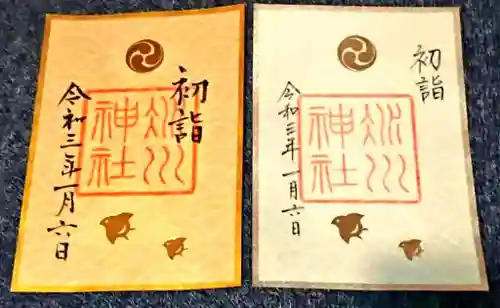 初詣
氷川神社
令和三年一月六日
初詣
氷川神社
令和三年一月六日